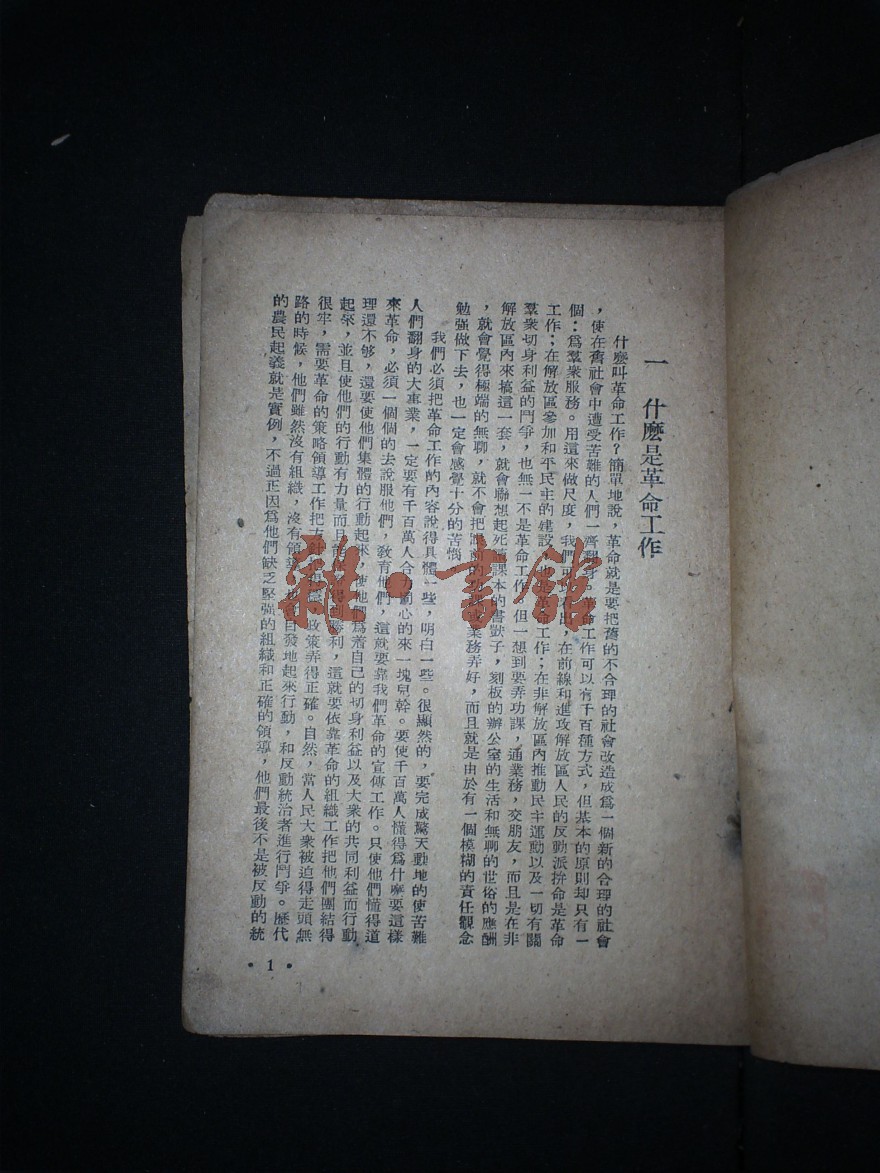 一 什麼是革命工作
什麼叫革命工作?簡單地說,革命就是要把舊的不合理的社會改造成爲一個新的合理的社會
,使在舊社會中遭受苦難的人們一齊翻身。革命工作可以有千百種方式,但基本的原則却只有一
個:爲羣衆服務。用這來做尺度,我們可以看出,在前線和進攻解放區人民的反動派拚命是革命
工作;在解放區參加和平民主的建設也是革命工作;在非解放區內推動民主運動以及一切有關
羣衆切身利益的鬥爭,也無一不是革命工作。但一想到要弄功課,通業務,交朋友,而且是在非
解放區內來搞這一套,就會聯想起死讀課本的書獃子,刻板的辦公室的生活和無聊的世俗的應酬
,就會覺得極端的無聊,就不會把業務弄好,而且就是由於有一個模糊的責任觀念
勉强做下去,也一定會感覺十分的苦惱。
我們必須把革命工作的內容說得具體一些,明白一些。很顯然的,要完成驚天動地的使苦難
人們翻身的大事業,一定要有千百萬人合力同心的來一塊兒幹。要使千百萬人懂得爲什麼要這樣
來革命,必須一個個的去說服他們,教育他們,這就要靠我們革命的宣傳工作。只使他們懂得道
理還不够,還要使他們集體的行動起來,使他們爲着自己的切身利益以及大衆的共同利益而行動
起來,並且使他們的行動有力量而且能得到勝利,這就要依靠革命的組織工作把他們團結得
很牢,需要革命的策略領導工作把方針政策弄得正確。自然,當人民大衆被迫得走頭無
路的時候,他們雖然沒有組織,沒有領導,也會自發地起來行動,和反動統治者進行鬥爭。歷代
的農民起義就是實例,不過正因爲他們缺乏堅强的組織和正確的領導,他們最後不是被反動的統
• 1 •
雜·書館